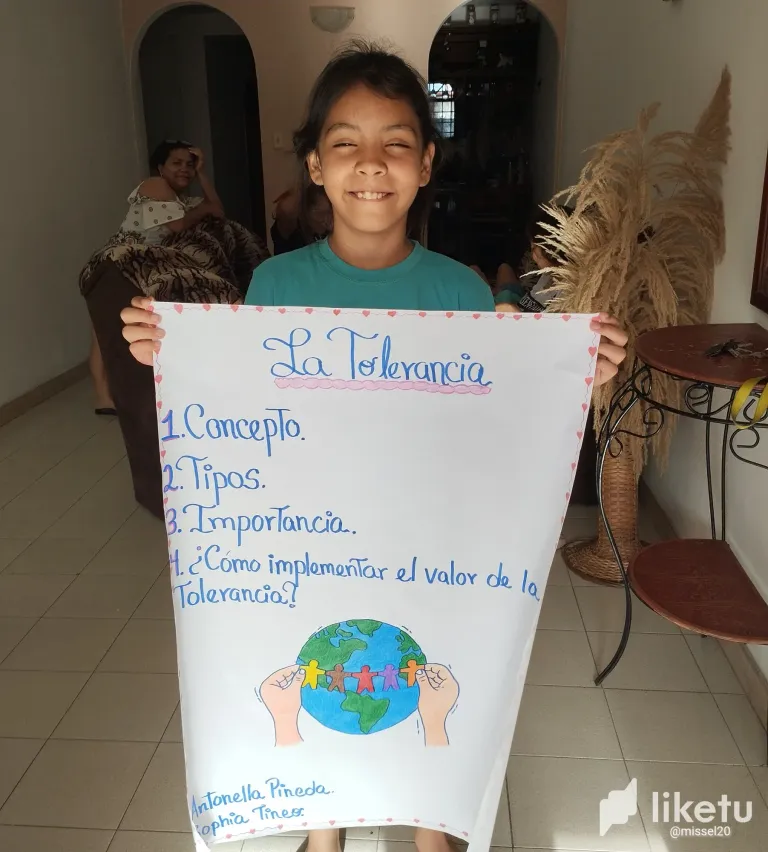 La Tolerancia
1. Concepto.
2. Tipos.
3. Importancia.
4. ¿Cómo implementar el valor de la
Tolerancia?
Antonella Pineda.
Sophia Tineo
liketu
@missel20